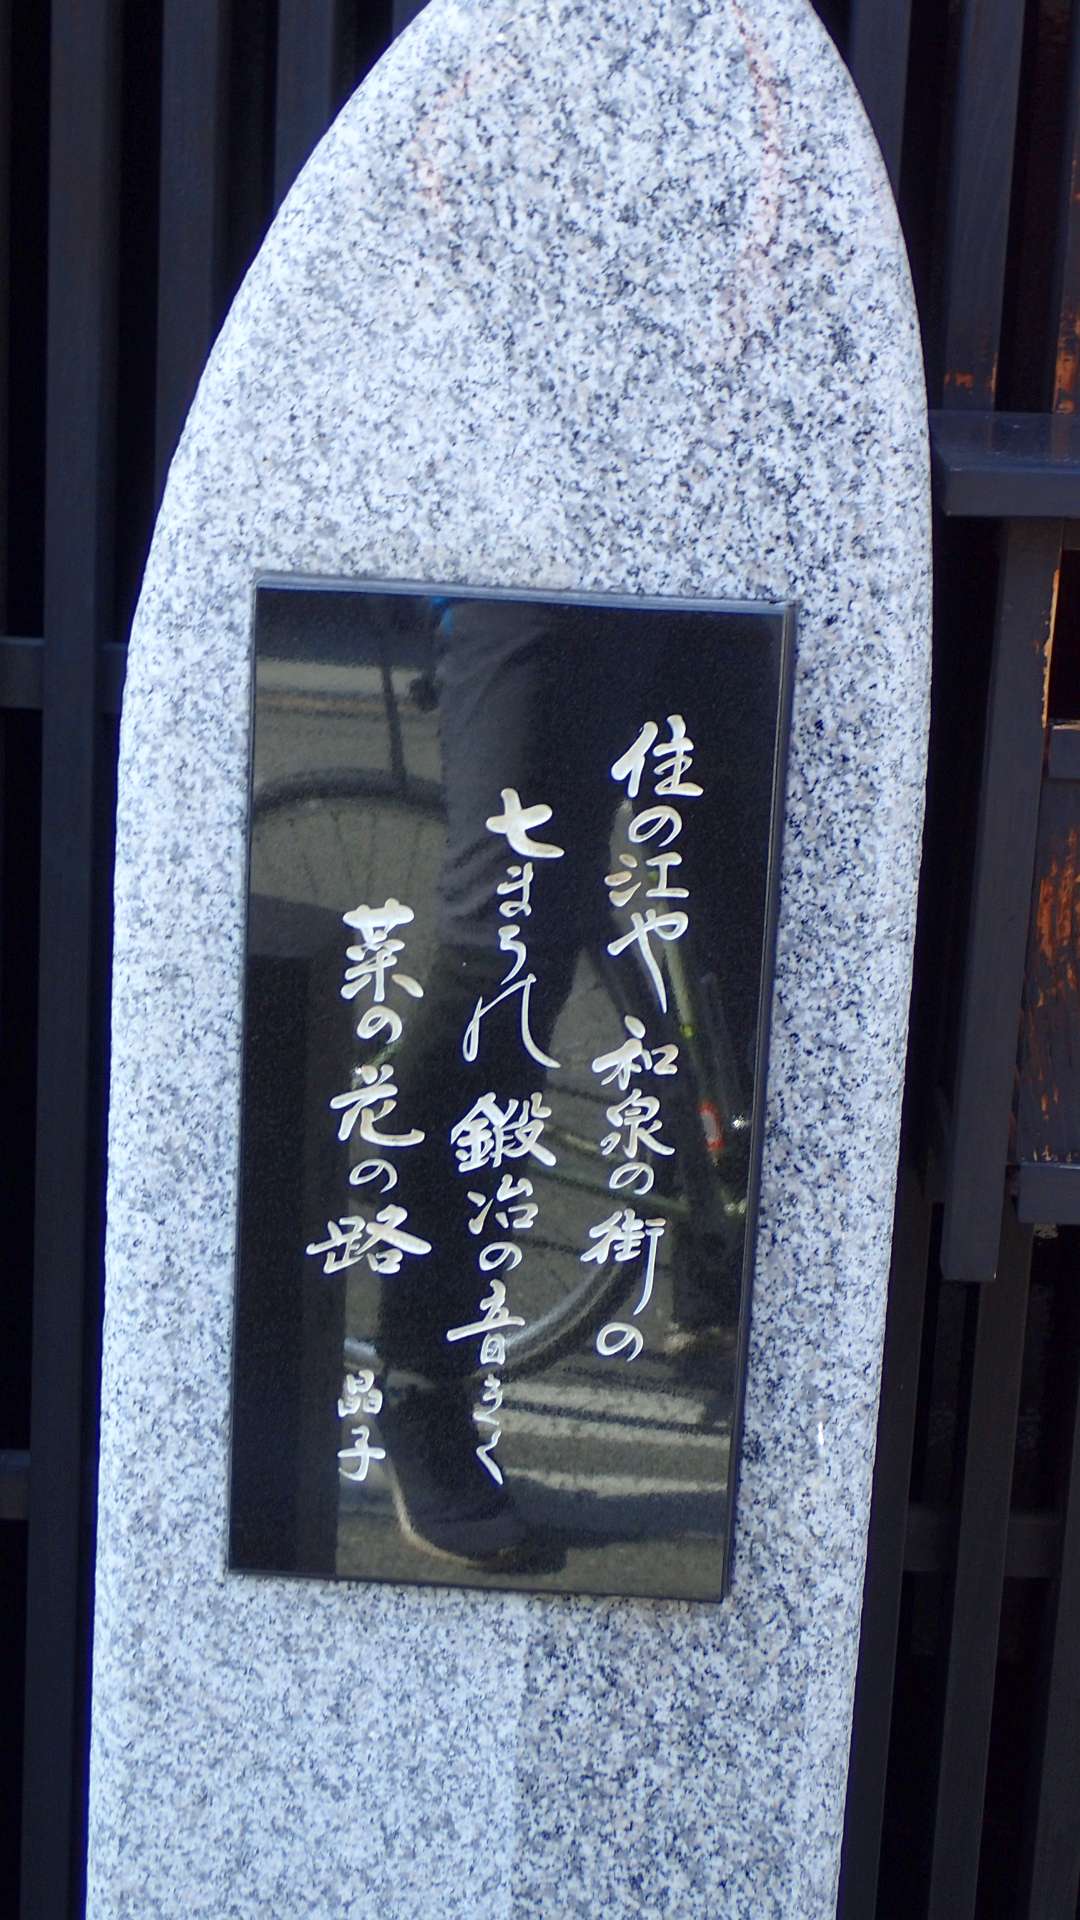 住の江や和泉の街の
七まちの鍛冶の音きく
菜の花の路
晶子